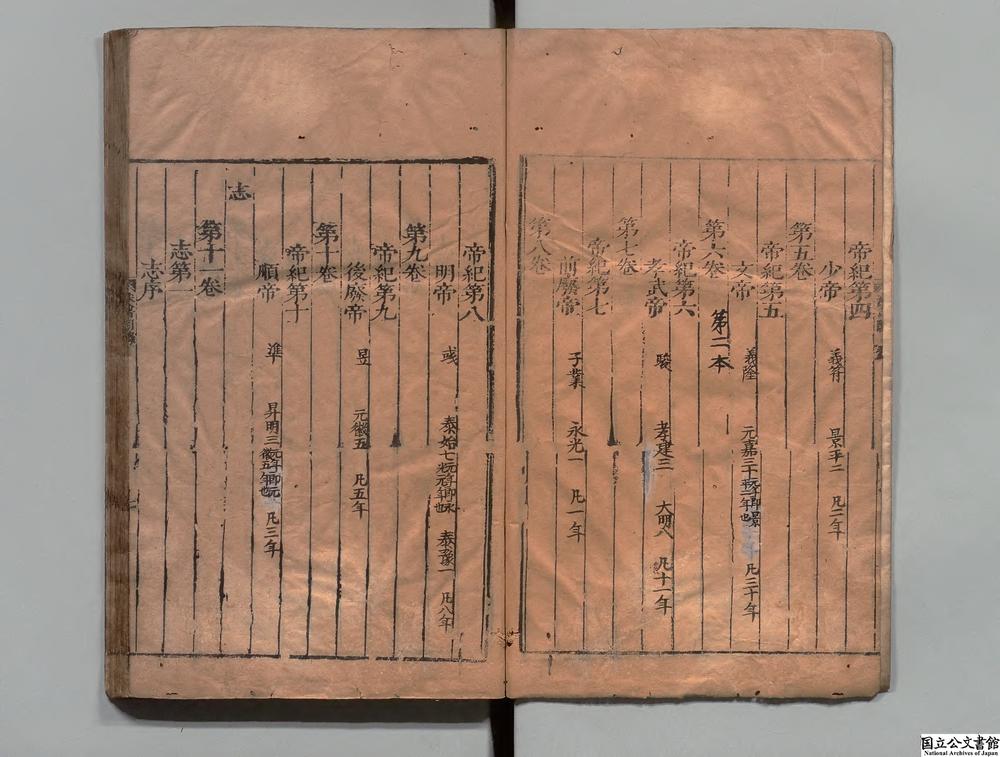 帝紀第四
少帝 義符 景平二 凡二年
第五卷
帝紀第五
文帝 義隆 元嘉三十 元年即景平二年也 凡三十年
第二本
第六卷
帝紀第六
孝武帝 駿 孝建三 大明八 凡十一年
第七卷
帝紀第七
前廢帝 子業 永光一 凡一年
第八卷
帝紀第八
明帝 彧 泰始七 泰豫一 凡八年
第九卷
帝紀第九
後廢帝 昱 元徽五 凡五年
第十卷
帝紀第十
順帝 準 昇明三 元年即元徽五年也 凡三年
志
第十一卷
志第一
志序
国立公文書館
National Archives of Japan